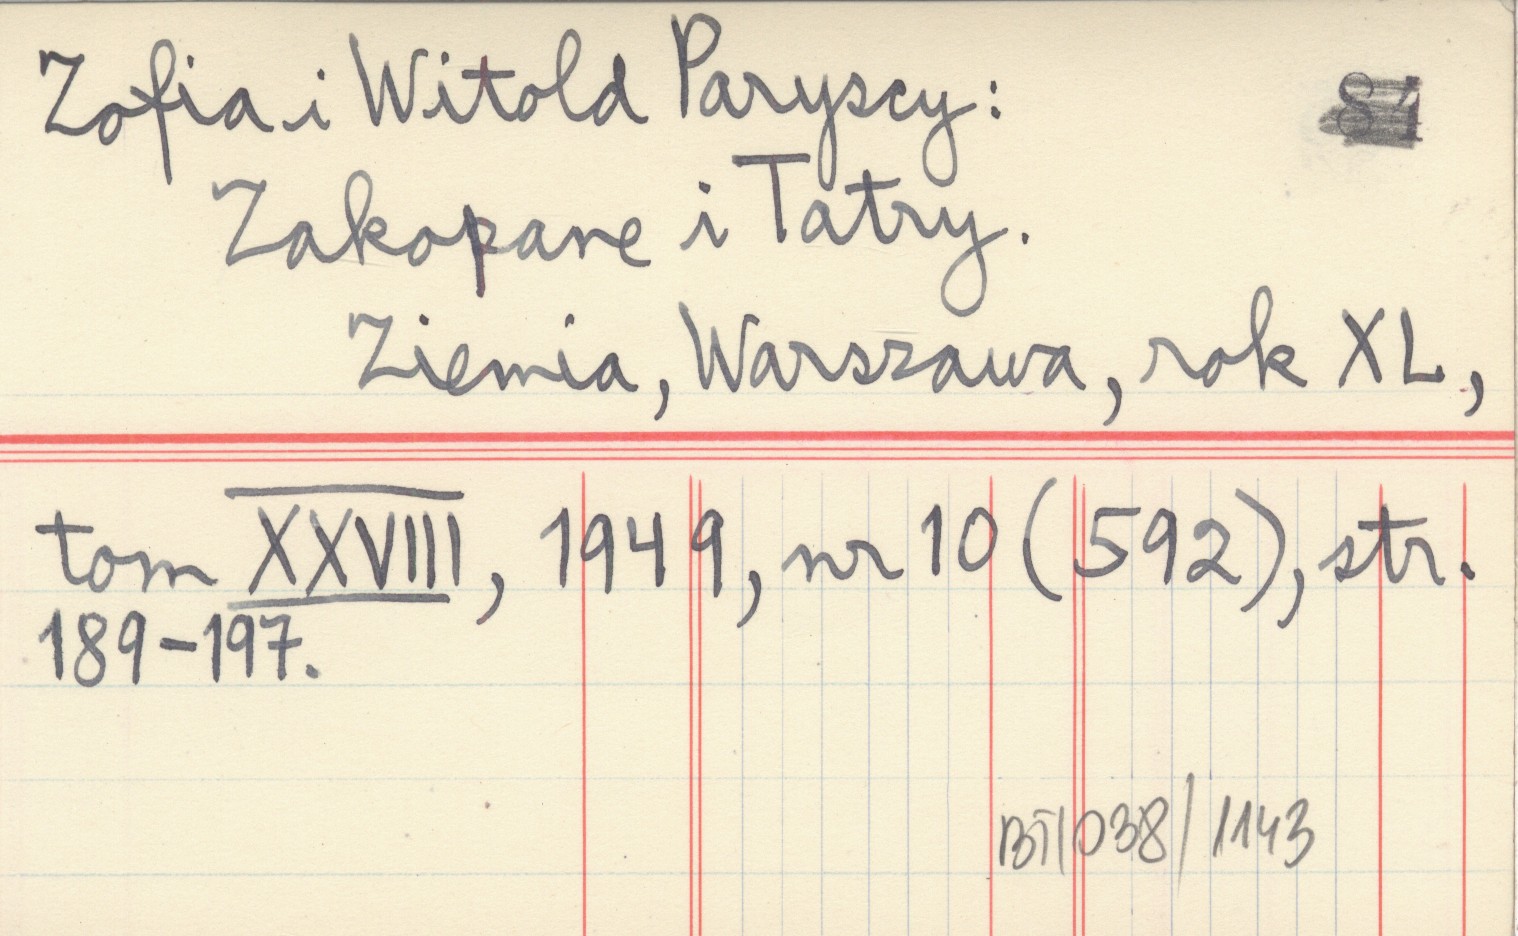 Zofia i Witold Paryscy:
84
Zakopane i Tatry.
Ziemia, Warszawa, rok XL,
tom XXVIII, 1949, nr 10 (592), str.
189-197.
BT/038/1143